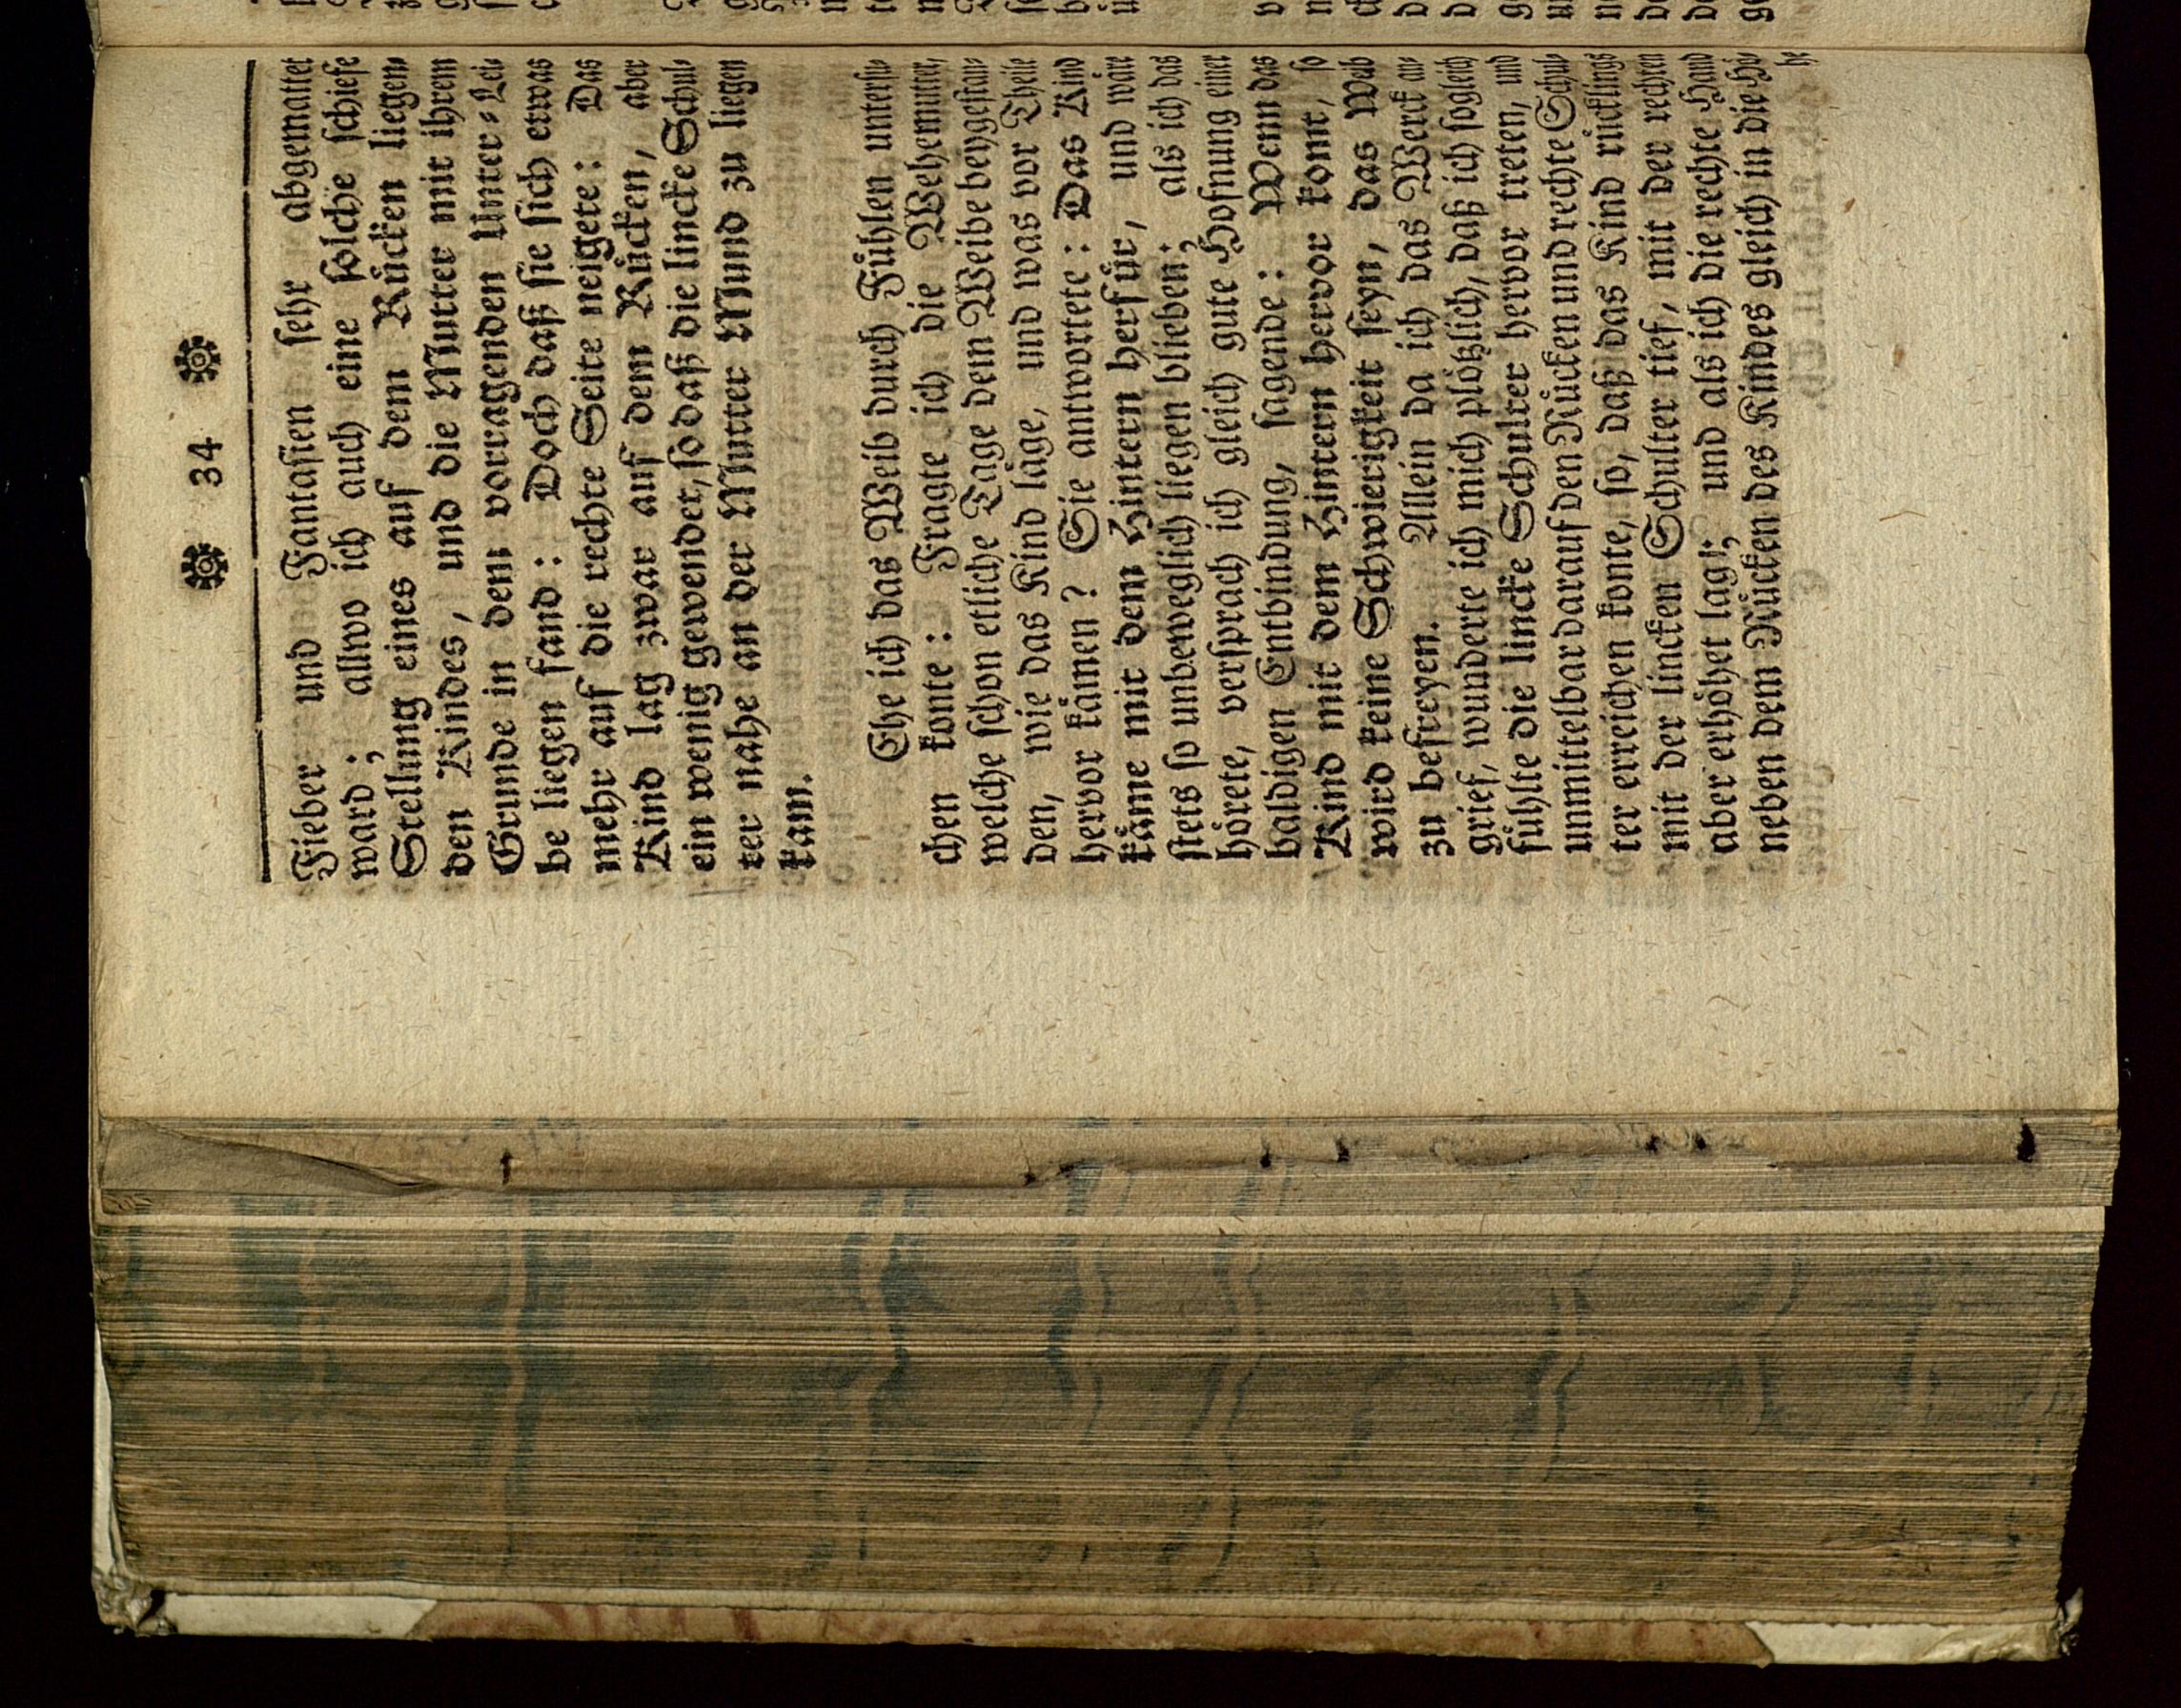 34
Fieber und Fantasien sehr abgemattet
ward; allwo ich auch eine solche schiefe
Stellung eines auf dem Rücken liegen⸗
den Kindes, und die Mutter mit ihrem
Grunde in dem vorragenden Unter⸗Lei⸗
be liegen fand: Doch daß sie sich etwas
mehr auf die rechte Seite neigete: Das
Kind lag zwar auf dem Rücken, aber
ein wenig gewendet, so daß die lincke Schul⸗
ter nahe an der Mutter Mund zu liegen
kam.
Ehe ich das Weib durch Fühlen untersu⸗
chen konte: Fragte ich die Wehemutter,
welche schon etliche Tage dem Weibe beygestan⸗
den, wie das Kind läge, und was vor Theile
hervor kämen? Sie antwortete: Das Kind
käme mit dem Hintern herfür, und wäre
stets so unbeweglich liegen blieben; als ich das
hörete, versprach ich gleich gute Hofnung einer
baldigen Entbindung, sagende: Wenn das
Kind mit dem Hintern hervor komt, so
wird keine Schwierigkeit seyn, das Weib
zu befreyen. Allein da ich das Werck an⸗
grief, wunderte ich mich plötzlich, daß ich sogleich
fühlte die lincke Schulter hervor treten, und
unmittelbar darauf den Rücken und rechte Schul⸗
ter erreichen konte, so, daß das Kind rücklings
mit der lincken Schulter tief, mit der rechten
aber erhöhet lag; und als ich die rechte Hand
neben dem Rücken des Kindes gleich in die Hö⸗
he